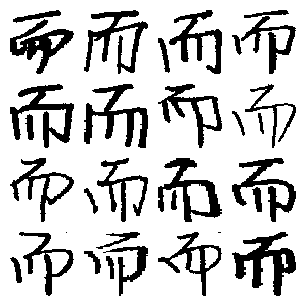 而而而而
而而而而
而而而而
而而而而